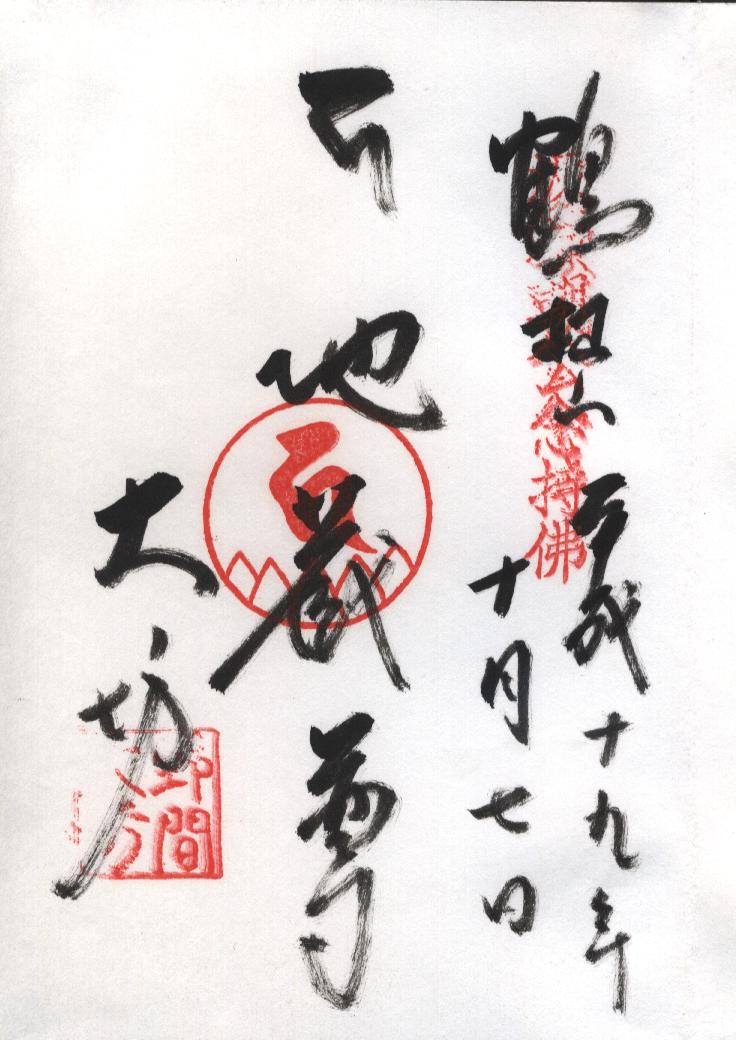 鶴林山 平成十九年
十月七日
持佛
地蔵尊
大坊
野間